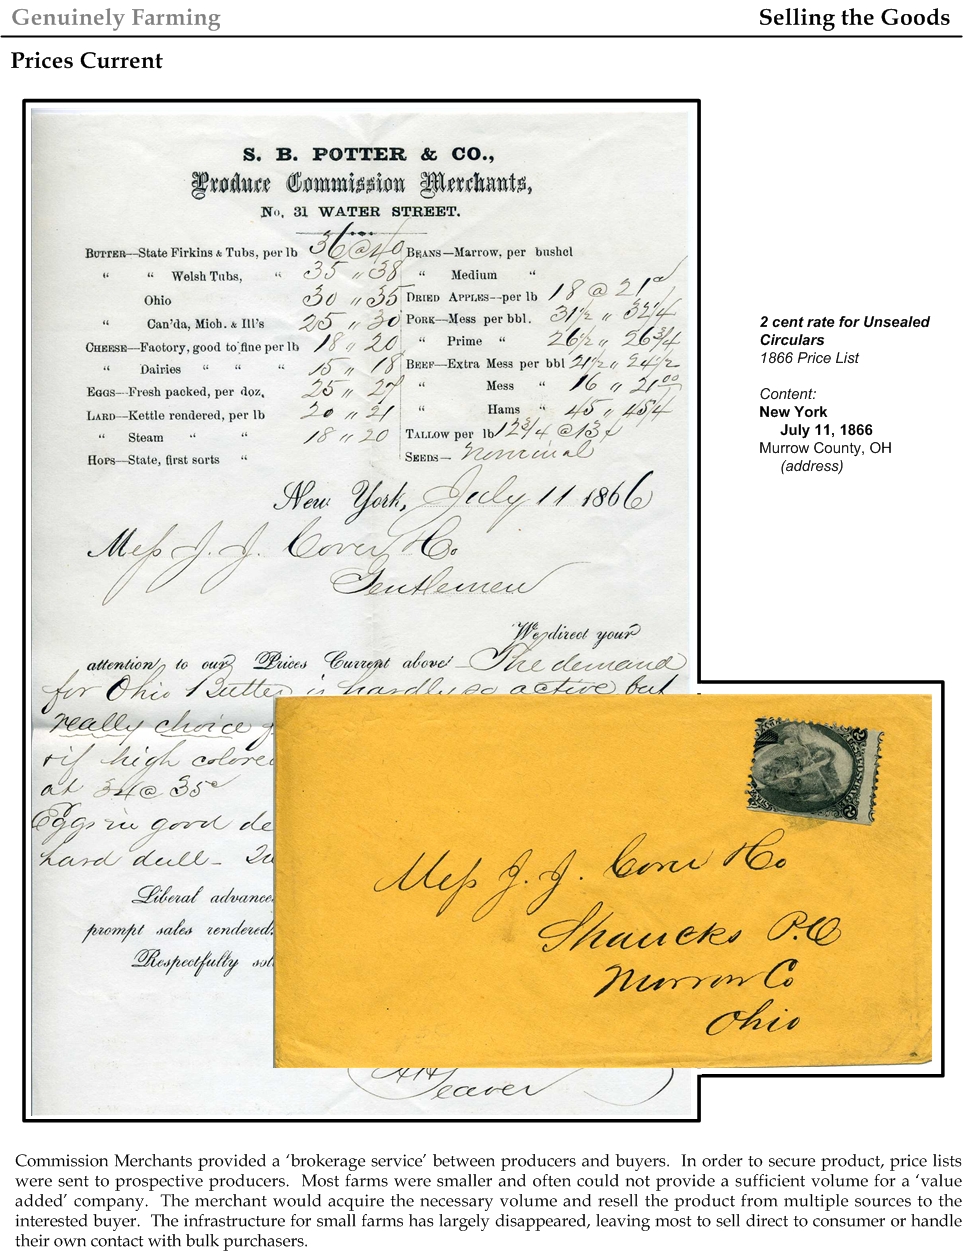 Genuinely Farming
Selling the Goods
Prices Current
S. B. POTTER & CO.,
Produce Commission Merchants,
No. 31 WATER STREET.
BUTTER—State Firkins & Tubs, per lb 36 @ 40
“ “ Welsh Tubs, “ 35 " 38
Ohio 30 " 35
“ Can'da, Mich. & Ill's 25 " 30
CHEESE—Factory, good to fine per lb 18 " 20
“ Dairies “ “ “ 15 " 18
EGGS—Fresh packed, per doz, 25 " 27
LARD—Kettle rendered, per lb 20 " 21
“ Steam “ “ 18 " 20
HOPS—State, first sorts “
BEANS—Marrow, per bushel
“ Medium “
DRIED APPLES--per lb 18 @ 21
PORK—Mess per bbl. 31 1/2 " 32 1/4
“ Prime “ 26 1/2 " 26 3/4
BEEF—Extra Mess per bbl 21 1/2 " 24 1/2
“ Mess “ 16 " 21 00
“ Hams “ 45 " 45 4
TALLOW per lb 12 3/4 @ 13
SEEDS— Nominal
New York, July 11 1866
Mess J. J. Cover & Co
Gentlemen
We direct your
attention to our Prices Current above— The demand
for Ohio Butter is hardly so active but
really choice
if high colore
at 34 @ 35c
Eggs in good de
hard dull –
Liberal advance
prompt sales rendered.
Respectfully sol
Seaver
Mess J. J. Cover & Co
Shaucks P.O
Murrow Co
Ohio
2 cent rate for Unsealed
Circulars
1866 Price List
Content:
New York
July 11, 1866
Murrow County, OH
(address)
Commission Merchants provided a ‘brokerage service’ between producers and buyers. In order to secure product, price lists
were sent to prospective producers. Most farms were smaller and often could not provide a sufficient volume for a ‘value
added’ company. The merchant would acquire the necessary volume and resell the product from multiple sources to the
interested buyer. The infrastructure for small farms has largely disappeared, leaving most to sell direct to consumer or handle
their own contact with bulk purchasers.